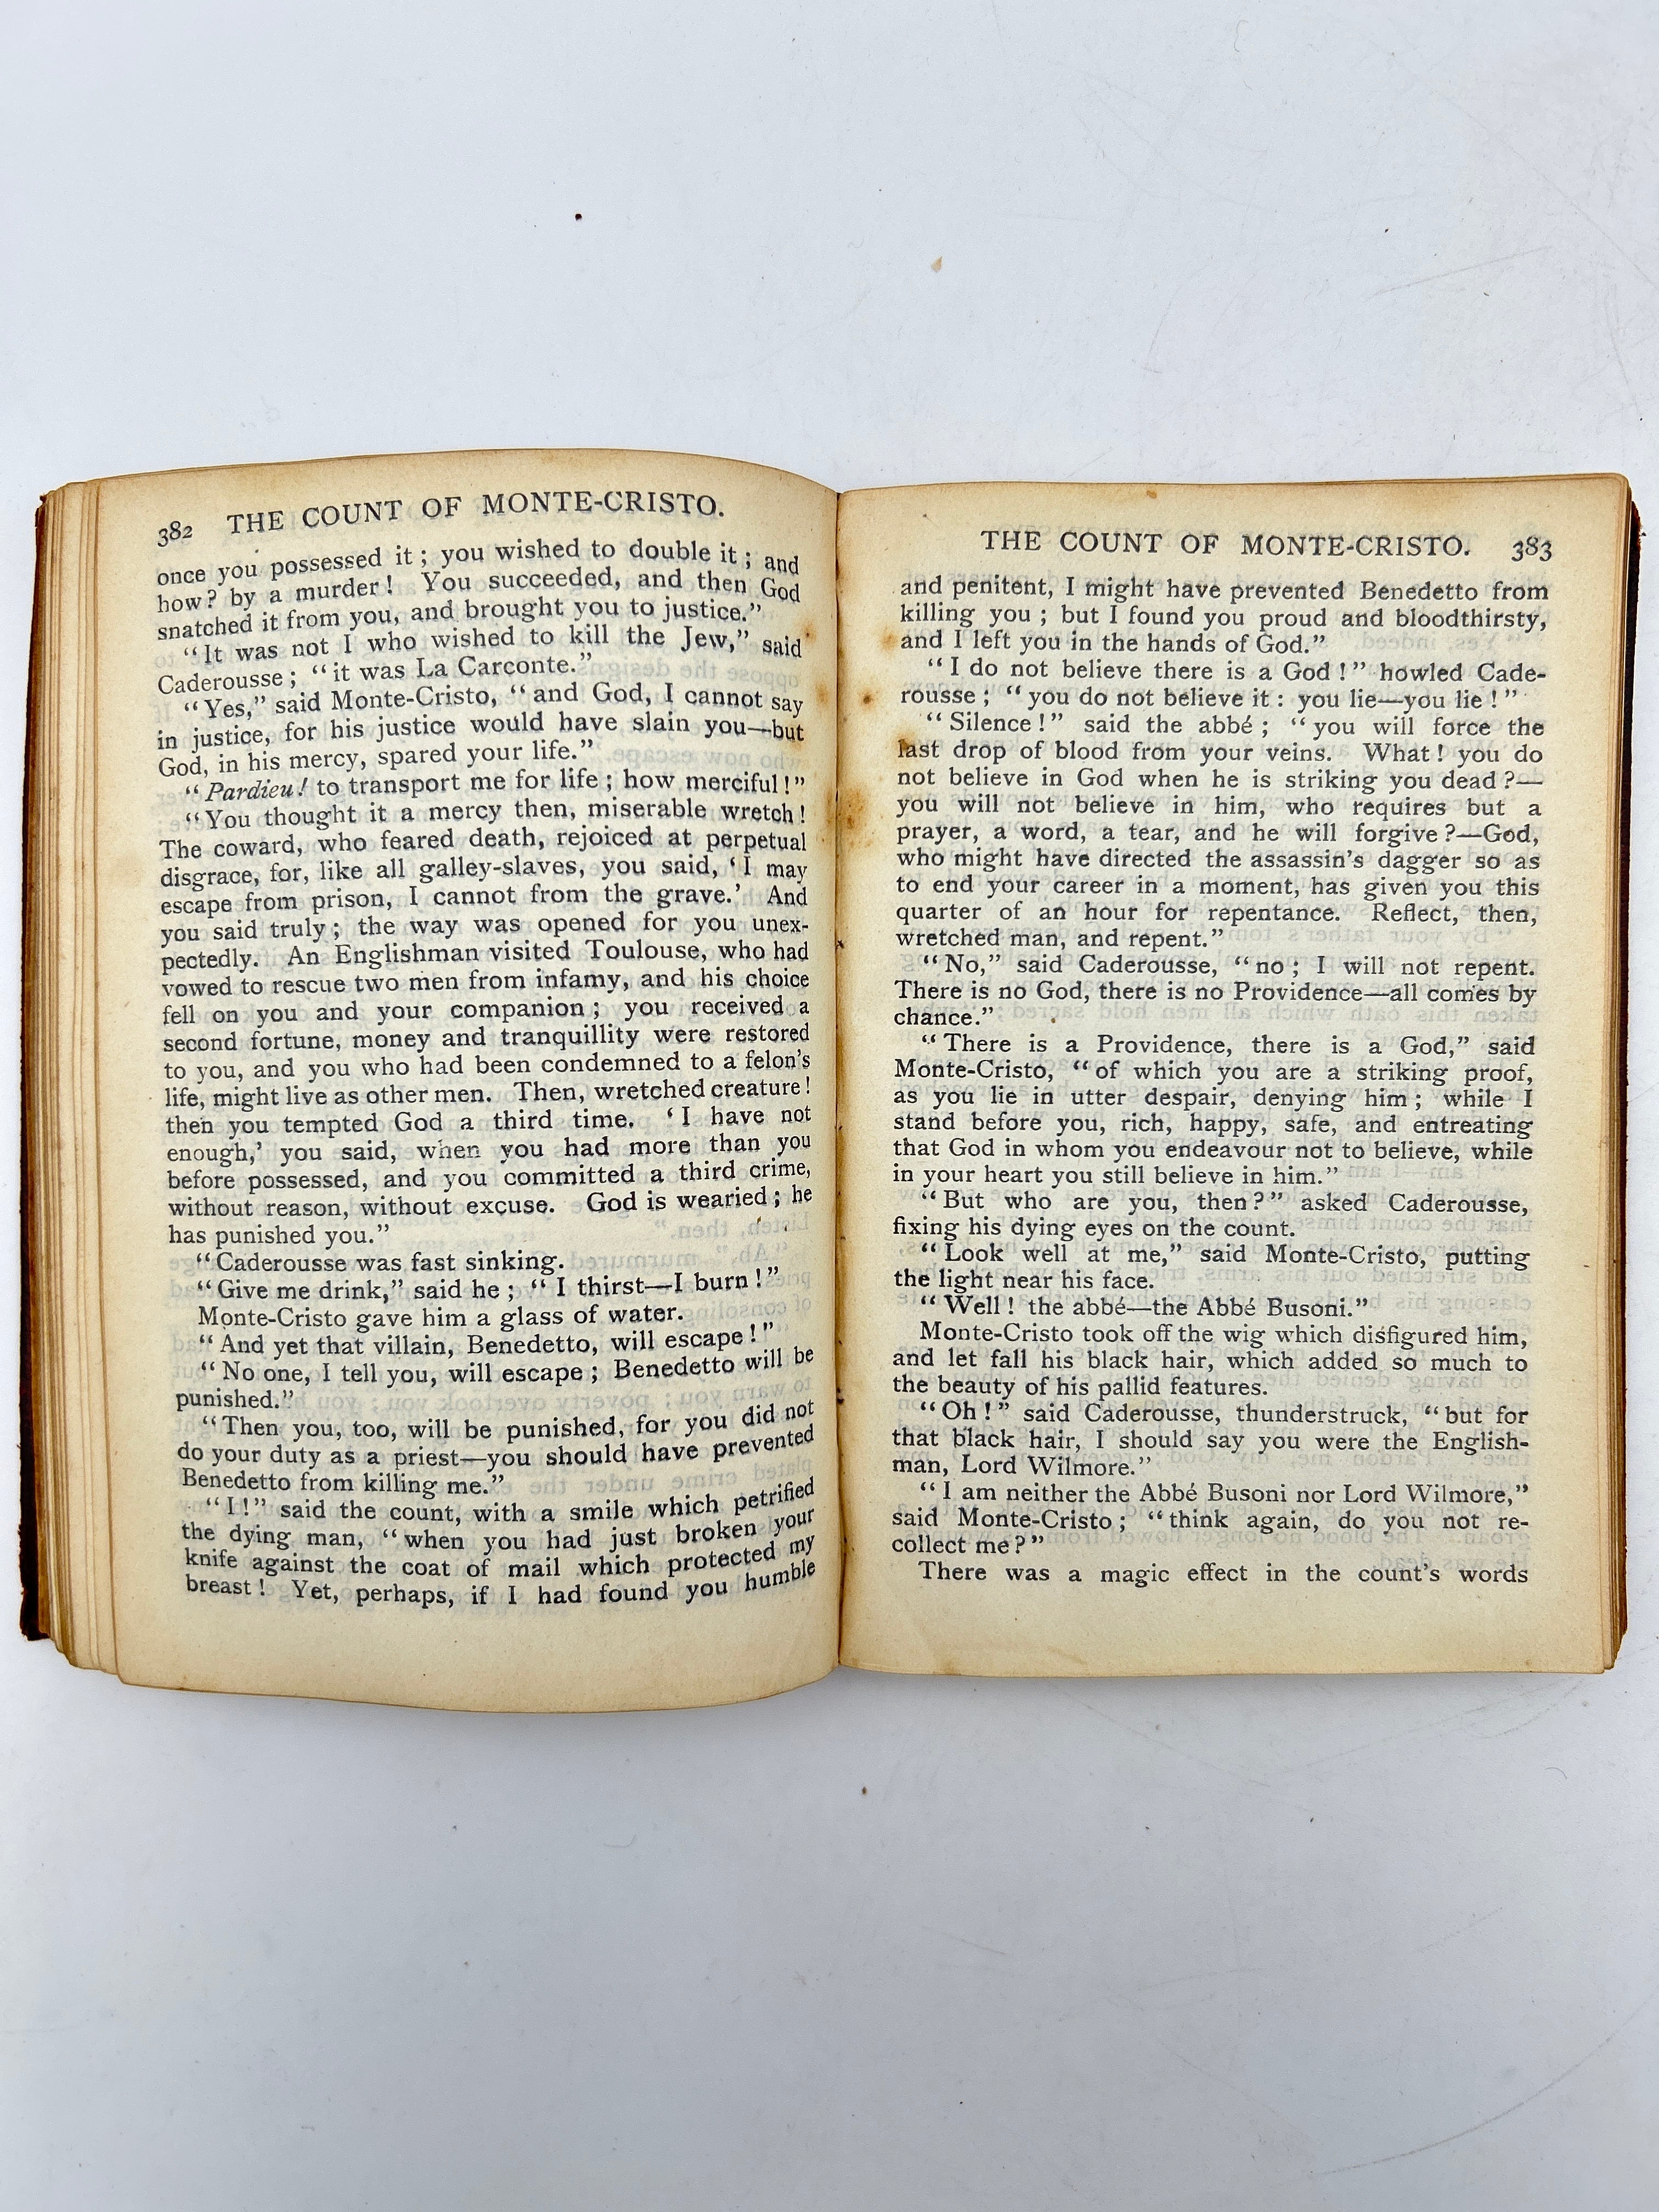 382 THE COUNT OF MONTE-CRISTO.
once you possessed it ; you wished to double it ; and
how? by a murder! You succeeded, and then God
snatched it from you, and brought you to justice.”
“It was not I who wished to kill the Jew,” said
Caderousse ; “it was La Carconte.”
“Yes,” said Monte-Cristo, “and God, I cannot say
in justice, for his justice would have slain you—but
God, in his mercy, spared your life.”
“Pardieu! to transport me for life ; how merciful!”
“You thought it a mercy then, miserable wretch!
The coward, who feared death, rejoiced at perpetual
disgrace, for, like all galley-slaves, you said, ‘I may
escape from prison, I cannot from the grave.’ And
you said truly ; the way was opened for you unex-
pectedly. An Englishman visited Toulouse, who had
vowed to rescue two men from infamy, and his choice
fell on you and your companion ; you received a
second fortune, money and tranquillity were restored
to you, and you who had been condemned to a felon’s
life, might live as other men. Then, wretched creature!
then you tempted God a third time. ‘I have not
enough,’ you said, when you had more than you
before possessed, and you committed a third crime,
without reason, without excuse. God is wearied ; he
has punished you.”
“Caderousse was fast sinking.
“Give me drink,” said he ; “I thirst—I burn!”
Monte-Cristo gave him a glass of water.
“And yet that villain, Benedetto, will escape!”
“No one, I tell you, will escape ; Benedetto will be
punished.”
“Then you, too, will be punished, for you did not
do your duty as a priest—you should have prevented
Benedetto from killing me.”
“I!” said the count, with a smile which petrified
the dying man, “when you had just broken your
knife against the coat of mail which protected my
breast! Yet, perhaps, if I had found you humble
THE COUNT OF MONTE-CRISTO. 383
and penitent, I might have prevented Benedetto from
killing you ; but I found you proud and bloodthirsty,
and I left you in the hands of God.”
“I do not believe there is a God!” howled Cade-
rousse ; “you do not believe it : you lie—you lie!”
“Silence!” said the abbé ; “you will force the
last drop of blood from your veins. What! you do
not believe in God when he is striking you dead?—
you will not believe in him, who requires but a
prayer, a word, a tear, and he will forgive?—God,
who might have directed the assassin’s dagger so as
to end your career in a moment, has given you this
quarter of an hour for repentance. Reflect, then,
wretched man, and repent.”
“No,” said Caderousse, “no ; I will not repent.
There is no God, there is no Providence—all comes by
chance.”
“There is a Providence, there is a God,” said
Monte-Cristo, “of which you are a striking proof,
as you lie in utter despair, denying him ; while I
stand before you, rich, happy, safe, and entreating
that God in whom you endeavour not to believe, while
in your heart you still believe in him.”
“But who are you, then?” asked Caderousse,
fixing his dying eyes on the count.
“Look well at me,” said Monte-Cristo, putting
the light near his face.
“Well! the abbé—the Abbé Busoni.”
Monte-Cristo took off the wig which disfigured him,
and let fall his black hair, which added so much to
the beauty of his pallid features.
“Oh!” said Caderousse, thunderstruck, “but for
that black hair, I should say you were the English-
man, Lord Wilmore.”
“I am neither the Abbé Busoni nor Lord Wilmore,”
said Monte-Cristo ; “think again, do you not re-
collect me?”
There was a magic effect in the count’s words